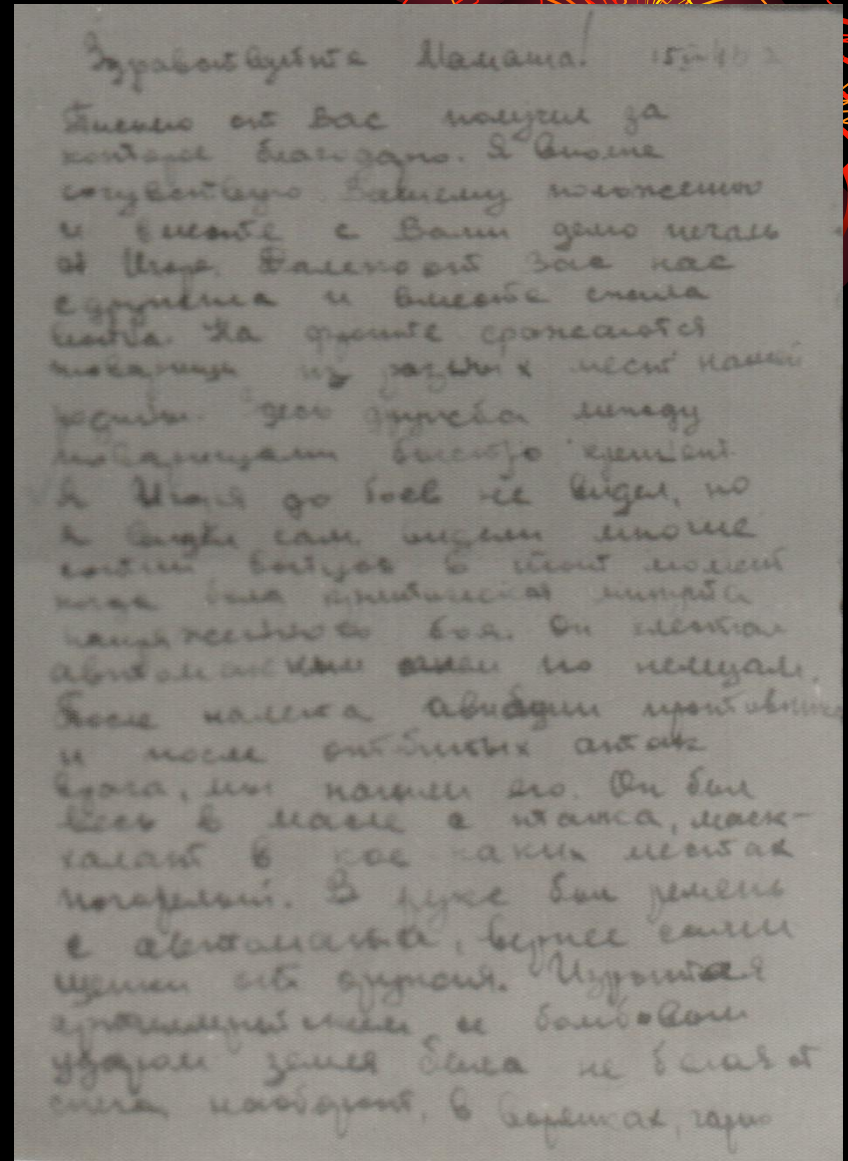 Здравствуйте Мамаша!
Письмо от Вас получил за
которое благодарю. Я вполне
сочувствую Вашему положению
и вместе с Вами делю печаль
от Игоре. Далеко от Вас нас
сдружила и вместе свела
война. На фронте сражаются
товарищи из разных мест нашей
родины. Здесь дружба между
товарищами быстро крепнет.
Я Игоря до боев не видел, но
я видел сам, видели многие
сотни бойцов в тот момент
когда была критическая минута
напряженного боя. Он
автоматным огнем по немцам.
После налета авиации противника
и после отбитых атак
врага, мы нашли его. Он был
весь в масле с танка, маск-
халат в кое каких местах
погорелый. В руке был ремень
с автомата, вернее самии
щепки от оружия. Изрытая
артиллерией и бомбовым
ударом земля была не белая от
снега, наоборот, в воронках,